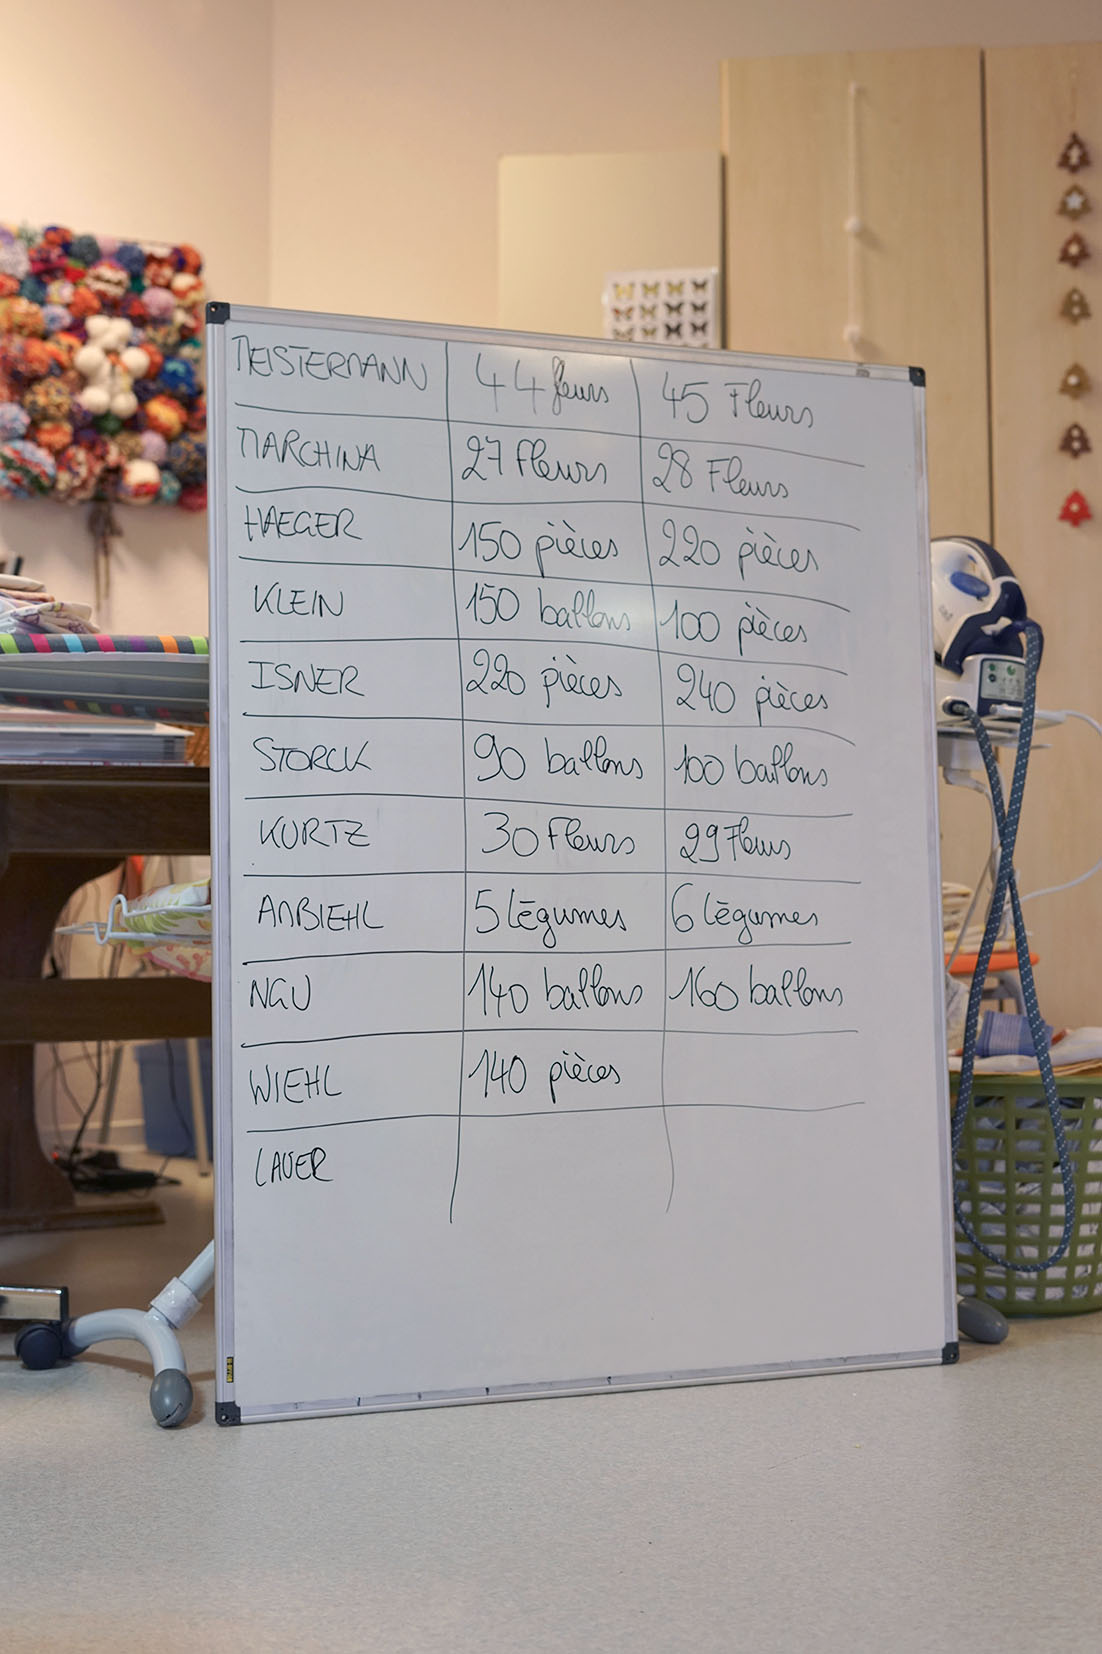 MEISTERMANN 44 fleurs 45 Fleurs
MARCHINA 27 Fleurs 28 Fleurs
HAEGER 150 pièces 220 pièces
KLEIN 150 ballons 100 pièces
ISNER 220 pièces 240 pièces
STORCK 90 ballons 100 ballons
KURTZ 30 Fleurs 29 Fleurs
AMBIEHL 5 légumes 6 légumes
NGU 140 ballons 160 ballons
WIEHL 140 pièces
LAUER